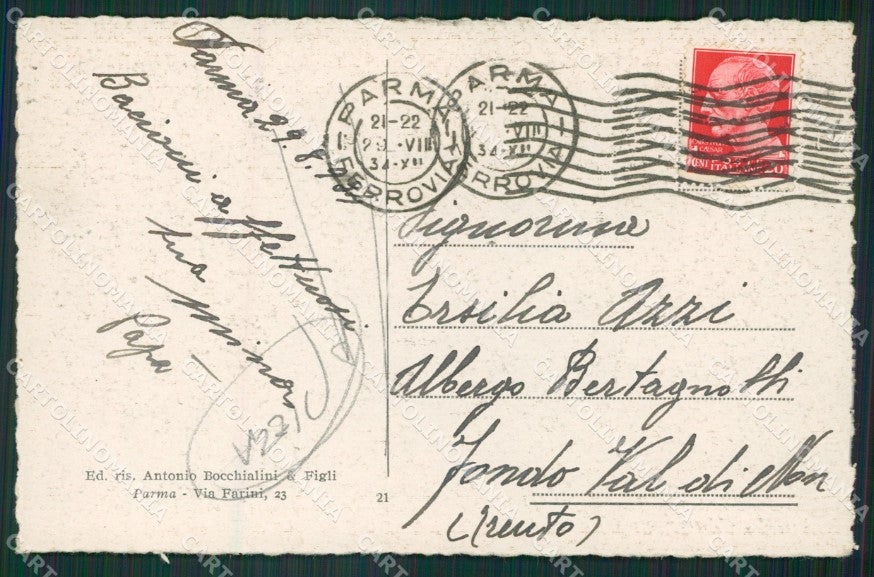 Parma 29.8.
Bacioni affettuosi
tua
Papà
PARMA
21-22
29.VIII
34-XII
FERROVIA
PARMA
21-22
VIII
34-XII
FERROVIA
CAESAR
Signorina
Ersilia Azzi
Albergo Bertagnolli
Fondo Val di Non
(Trento)
Ed. ris. Antonio Bocchialini & Figli
Parma - Via Farini, 23
21
CARTOLINOMANIA